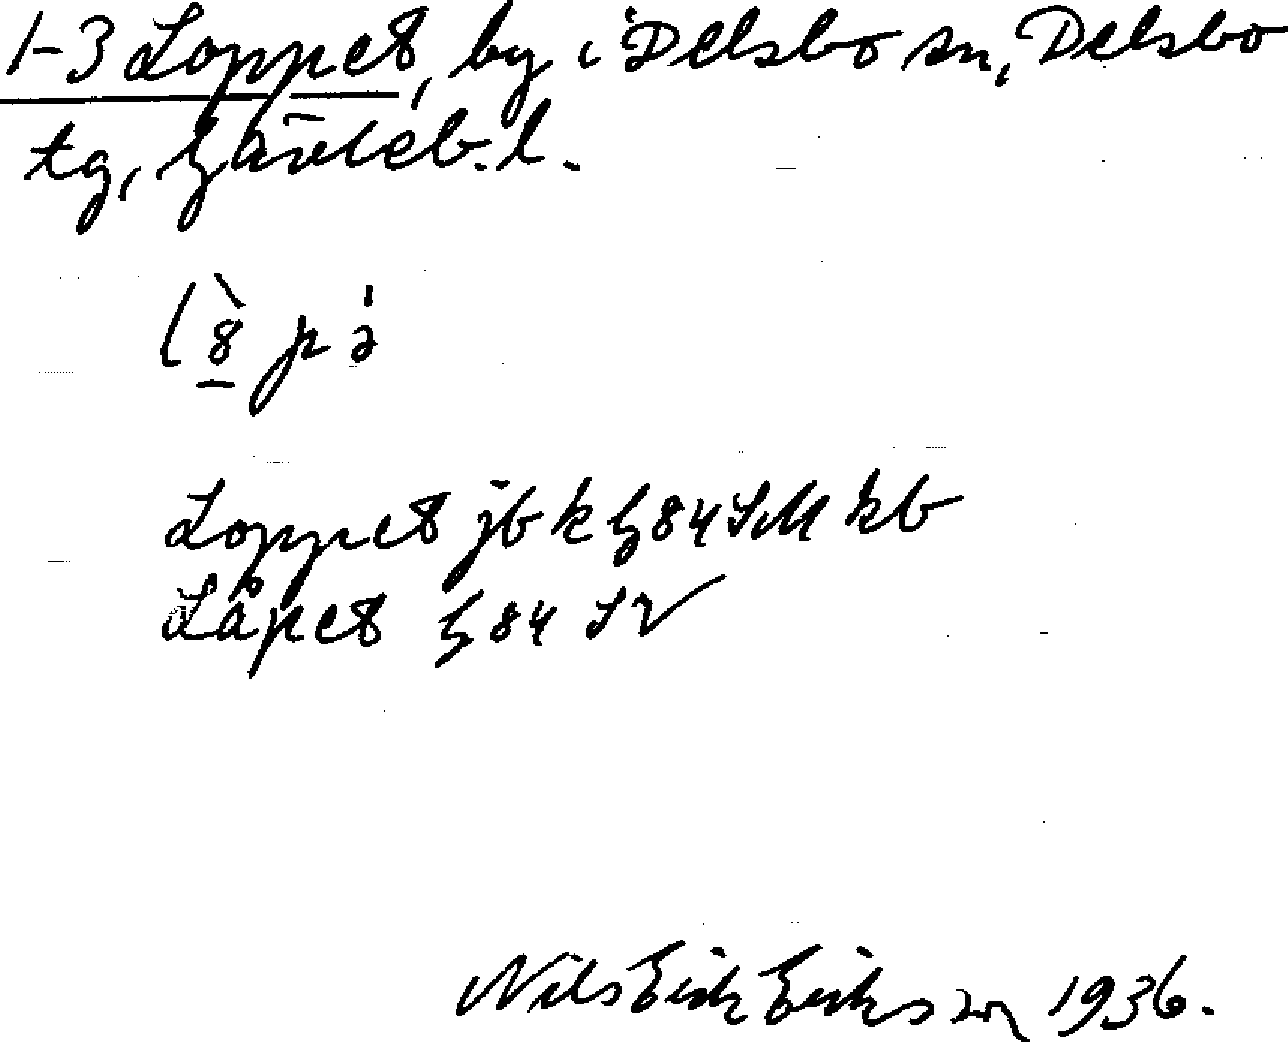 1-3 Loppet, by i Delsbo sn, Delsbo
tg, Gävleb. l.
Loppet jb k G 84 SM kb
Låpet G 84 SV
Nils Erik Eriksson 1936.